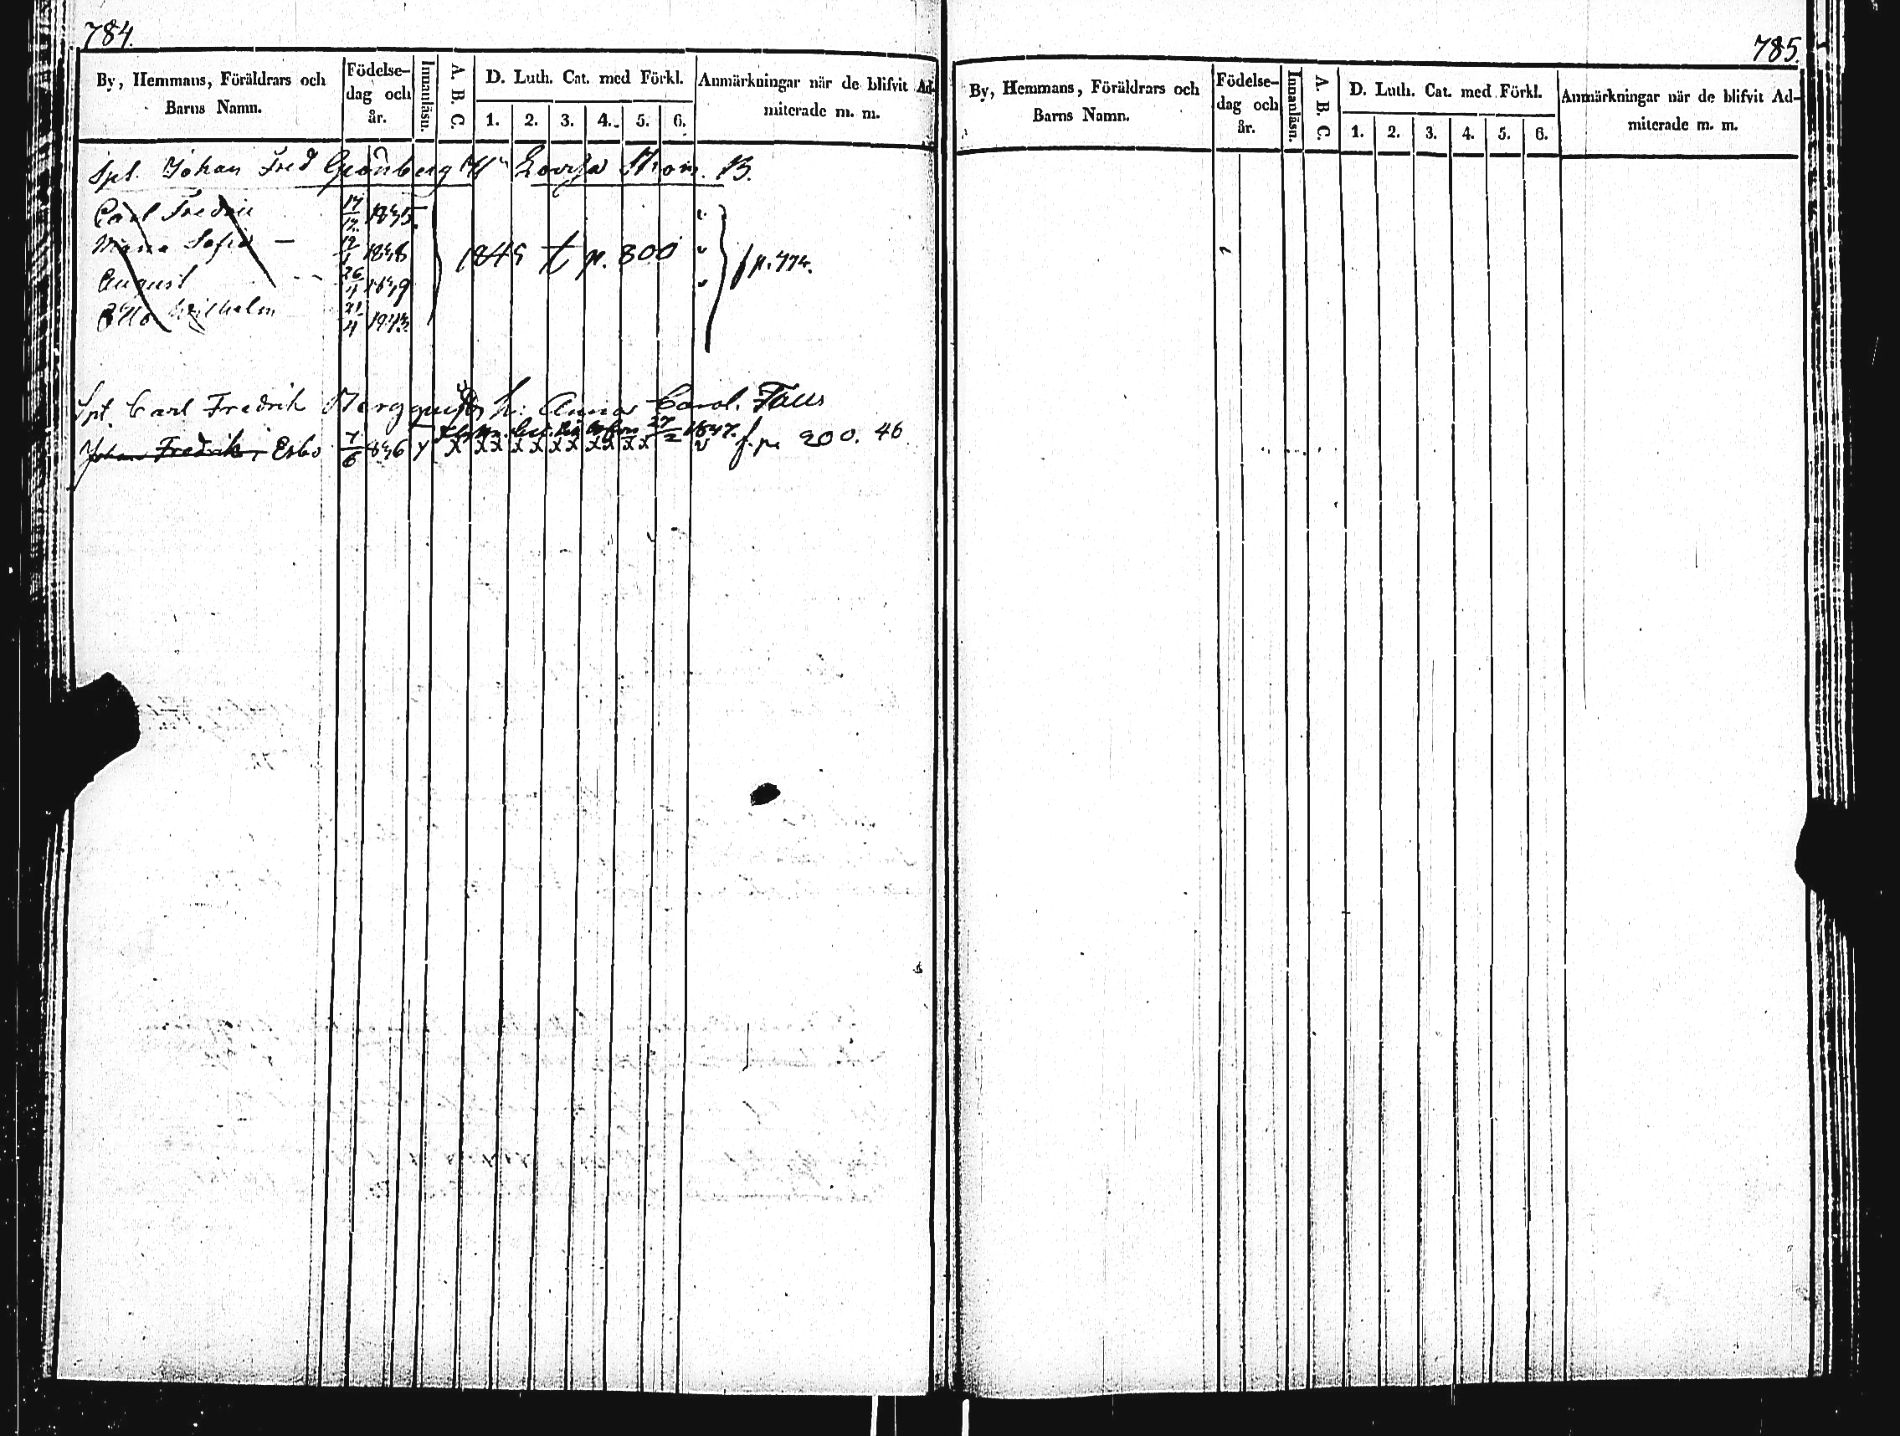 784.
By, Hemmans, Föräldrars och
Barns Namn.
Födelse-
dag och
år.
Innanläsn.
A. B. C.
D. Luth. Cat. med Förkl.
1. 2. 3. 4. 5. 6.
Anmärkningar när de blifvit Ad-
miterade m. m.
Spl. Johan Fred Grönberg Lovisa B.
Carl Fredric 17/12 1835
Maria Sofia — 1838
August 26 1839
Otto Wilhelm 21/4 1843
1849 t p. 800
f p. 774.
Spl. Carl Fredrik h: Anna Carol.
27/2 1847.
Johan Fredrik, Esbo 7/6 836 f. p. 200. 46
785.
By, Hemmans, Föräldrars och
Barns Namn.
Födelse-
dag och
år.
Innanläsn.
A. B. C.
D. Luth. Cat. med Förkl.
1. 2. 3. 4. 5. 6.
Anmärkningar när de blifvit Ad-
miterade m. m.